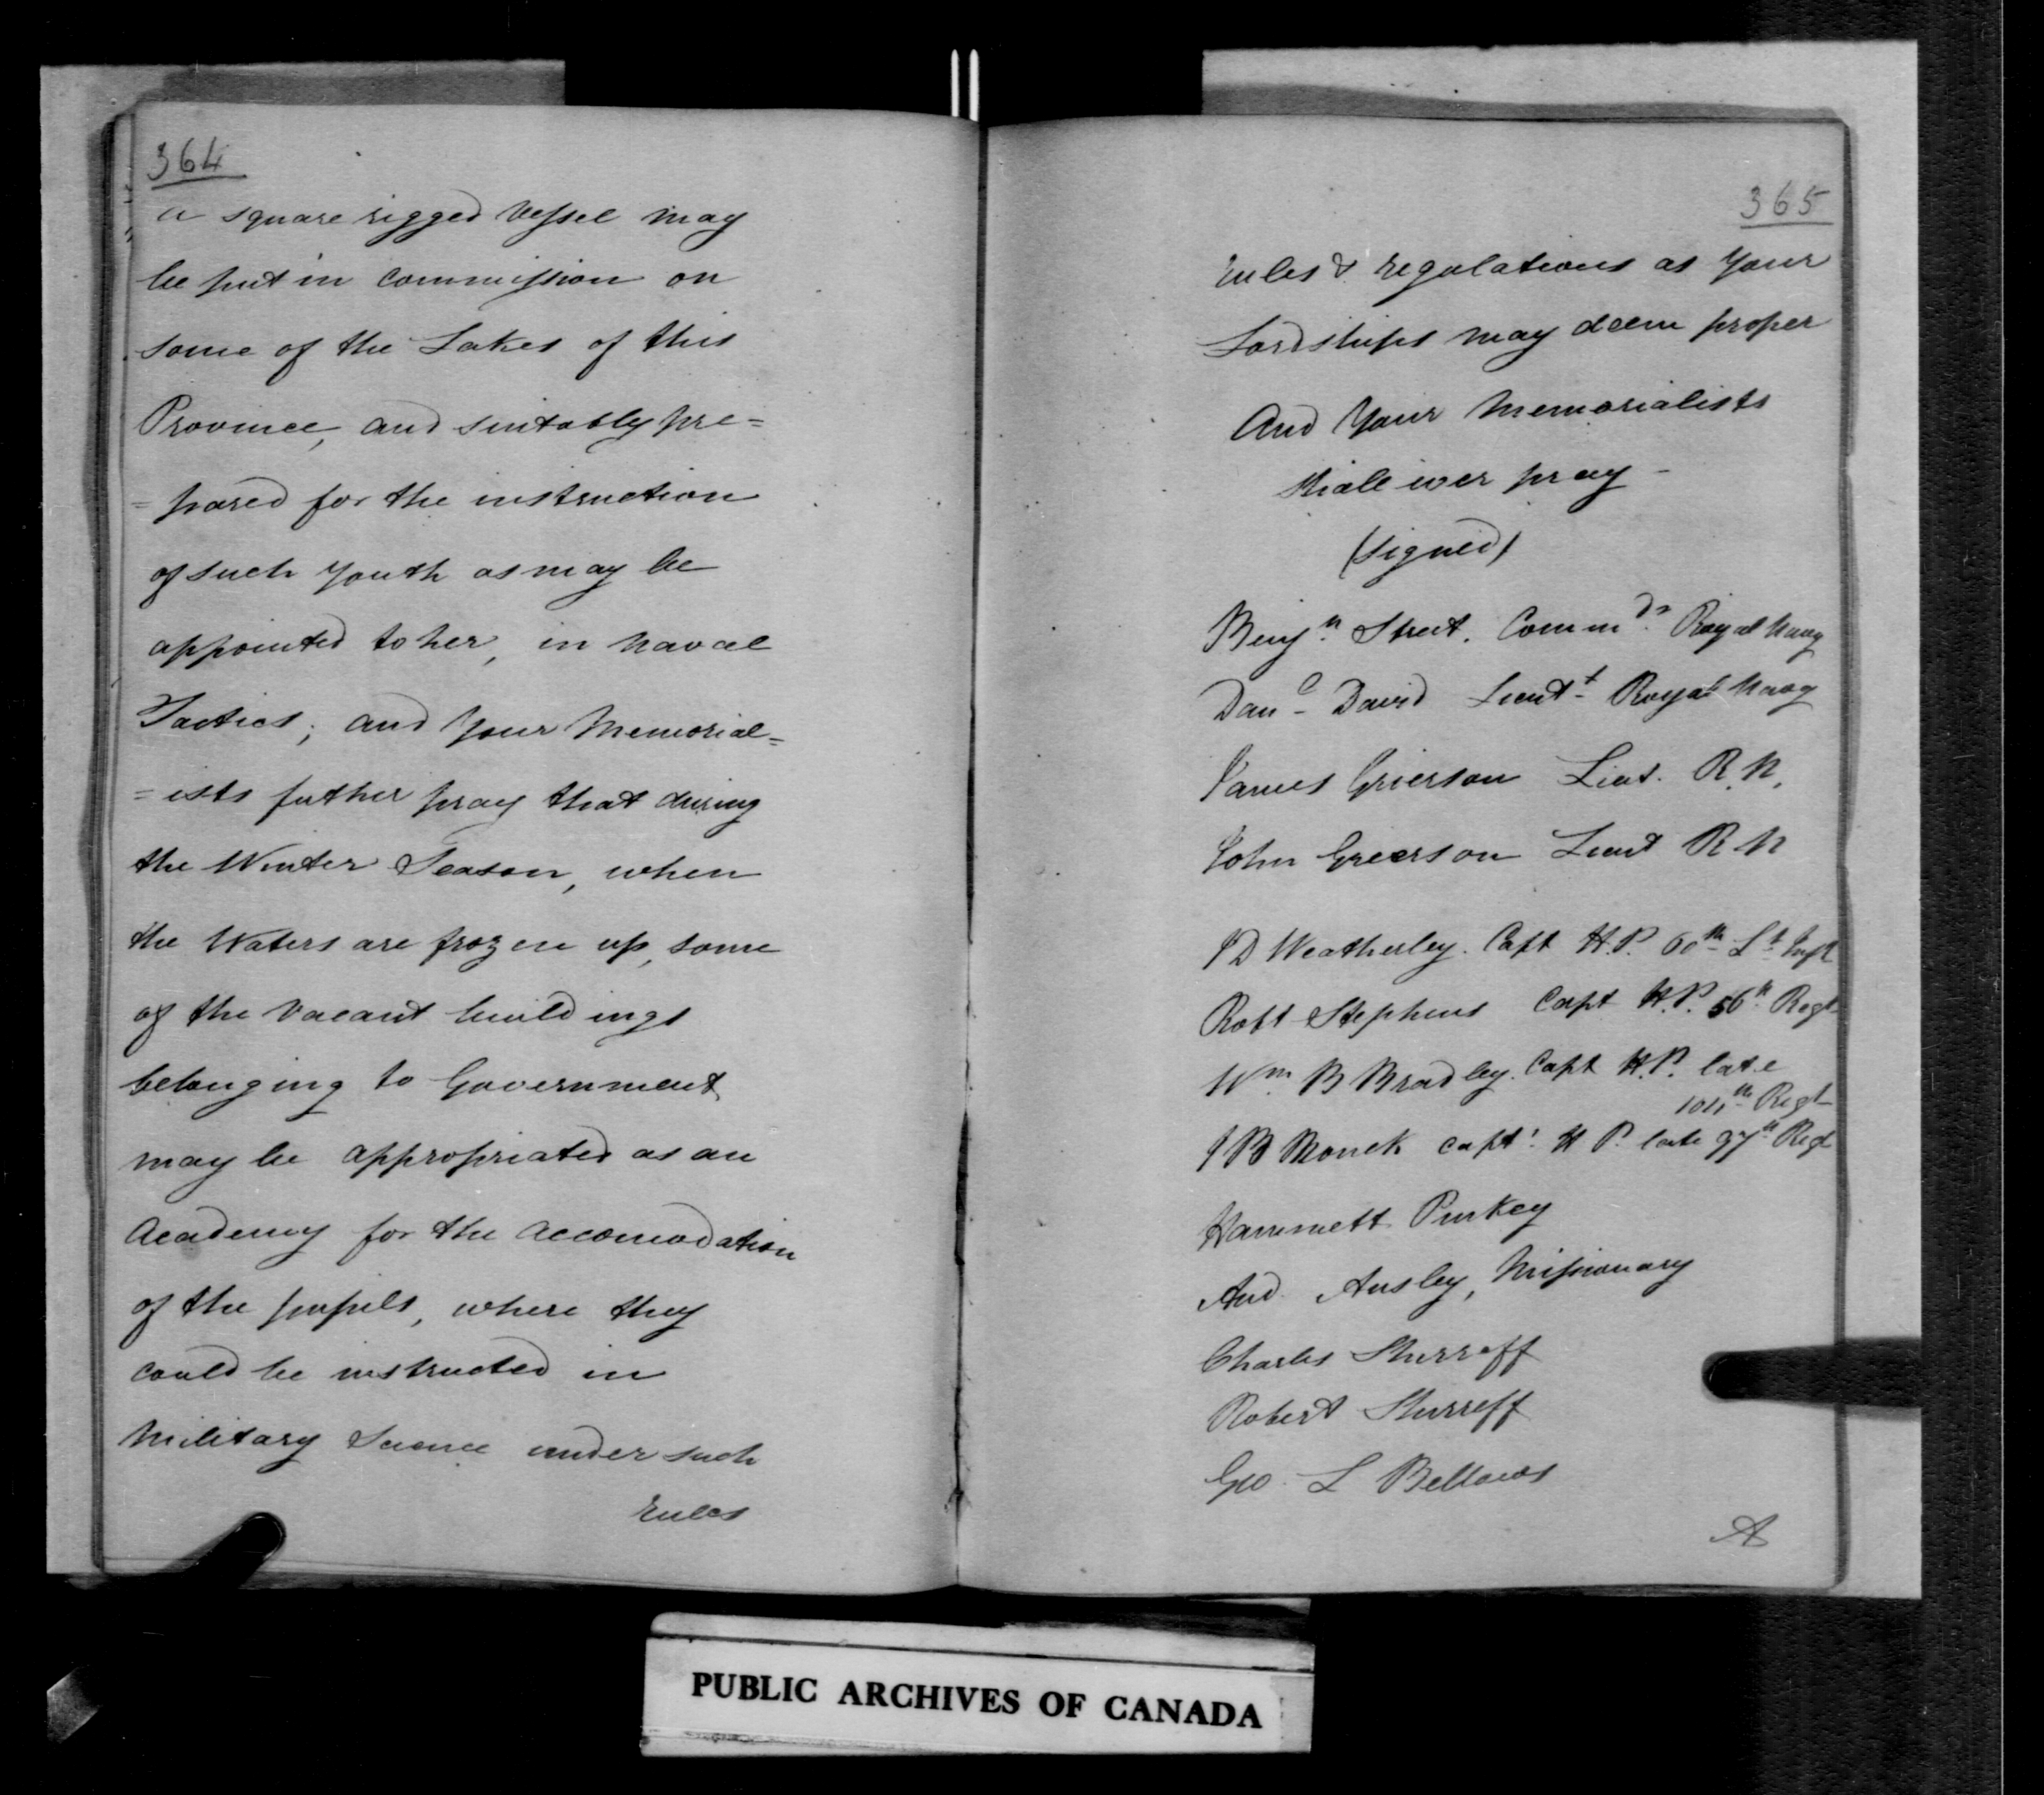 364
a square rigged Vessel may
be put in Commission on
some of the Lakes of this
Province, and suitably pre=
=pared for the instruction
of such Youth as may be
appointed to her, in Naval
Tactics; and Your Memorial=
=ists futher pray that during
the Winter Season, when
the Waters are frozen up, some
of the Vacant buildings
belonging to Government
may be appropriated as an
Academy for the accomodation
of the pupils, where they
could be instructed in
Military Science under such
rules
365
rules & regulations as Your
Lordships may deem proper
And Your Memorialists
Shall ever pray -
(signed)
Benjn. Street. Commdr. Royal Navy
Danl David Lieutt Royal Navy
James Grierson Liut. R.N.
John Grierson Lieut R N
J D Weatherley. Capt H.P. 60th Lt Inft
Robt Stephens Capt H.P. 56th Regt
Wm B Bradley. Capt H.P. late
104th Regt
J B Monck Capt. H P. late 97th Regt
Hammett Pinkey
And Ansley, Missionary
Charles Shirreff
Robert Shirreff
Geo. L Bellows
A
PUBLIC ARCHIVES OF CANADA